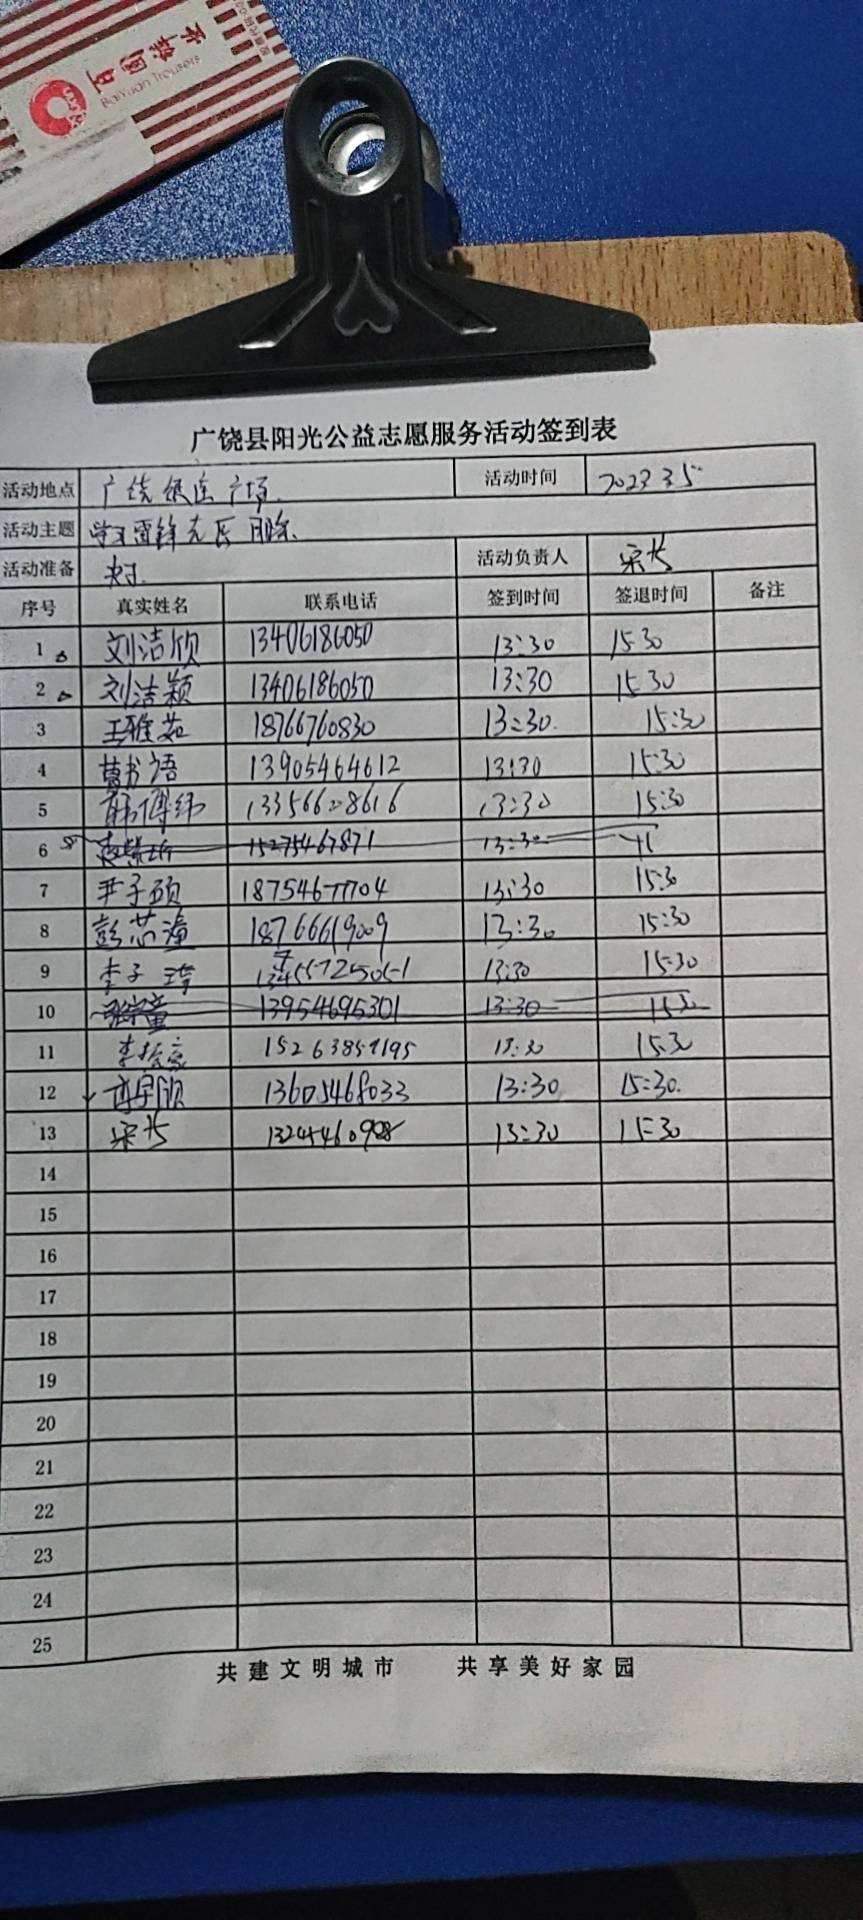 BaiYuan Trousers
广饶县阳光公益志愿服务活动签到表
活动地点 广饶 银座广场 活动时间 2023 3.5
活动主题 学习雷锋
活动准备 活动负责人
序号 真实姓名 联系电话 签到时间 签退时间 备注
1 刘洁欣 13406186050 13:30 15:30
2 刘洁颖 13406186050 13:30 15:30
3 王雅茹 18766760830 13:30 15:30
4 葛书语 13905464612 13:30 15:30
5 韩博纬 13356628616 13:30 15:30
6 15275467871 13:30
7 尹子硕 18754677704 13:30 15:30
8 彭芯潼 18766619009 13:30 15:30
9 李子 13:30 15:30
10 13954695301 13:30 15:30
11 李 15263857195 13:30 15:30
12 13605468033 13:30 15:30
13 13:30 15:30
14
15
16
17
18
19
20
21
22
23
24
25
共建文明城市 共享美好家园